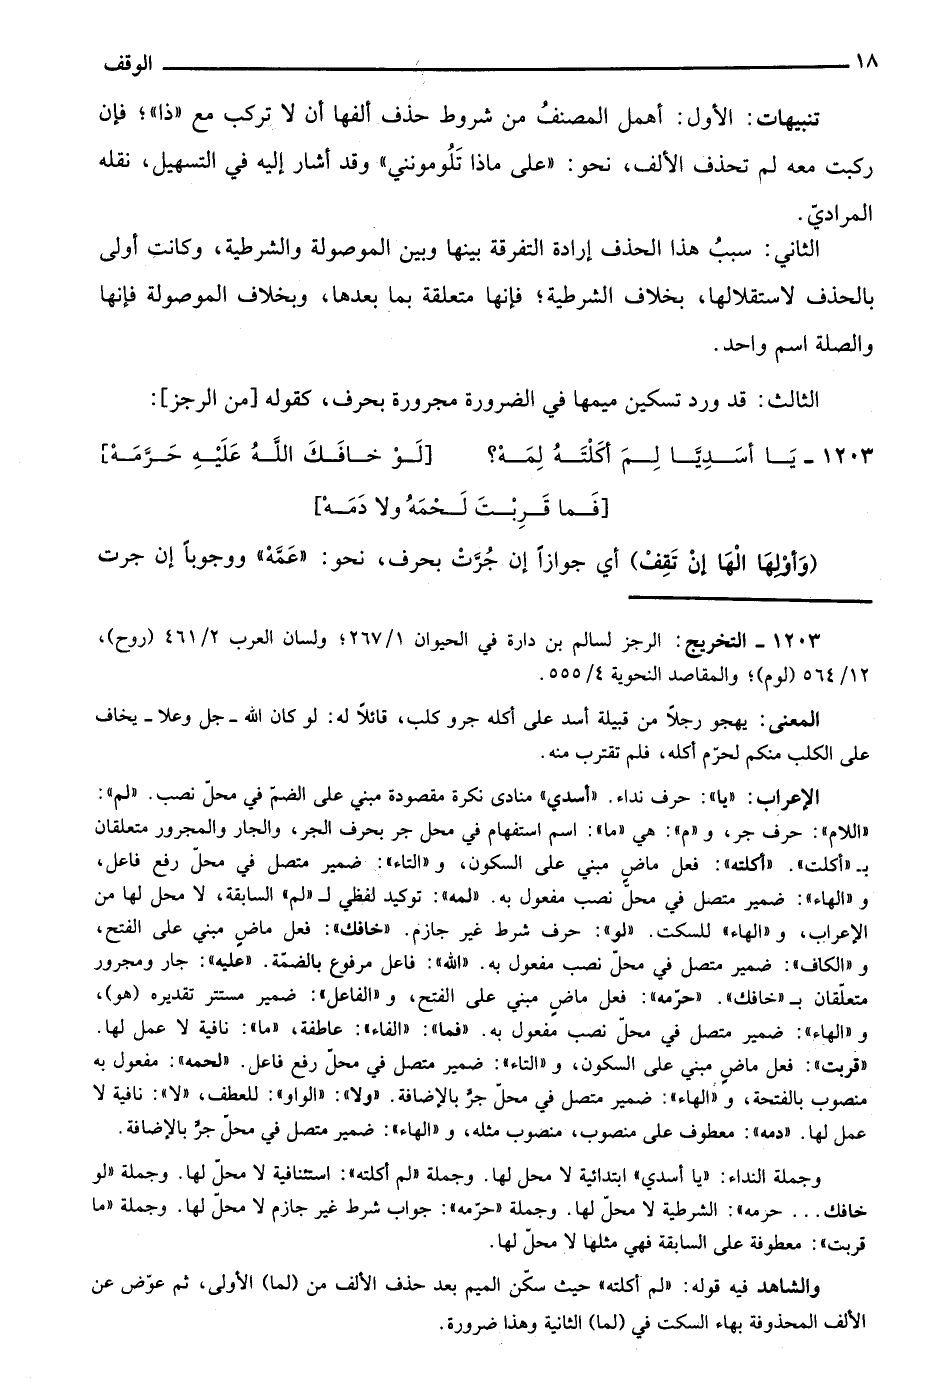 ١٨ الوقف
تنبيهات: الأول: أهمل المصنفُ من شروط حذف ألفها أن لا تركب مع «ذا»؛ فإن
ركبت معه لم تحذف الألف، نحو: «على ماذا تَلُومونني» وقد أشار إليه في التسهيل، نقله
المراديّ.
الثاني: سببُ هذا الحذف إرادة التفرقة بينها وبين الموصولة والشرطية، وكانت أولى
بالحذف لاستقلالها، بخلاف الشرطية؛ فإنها متعلقة بما بعدها، وبخلاف الموصولة فإنها
والصلة اسم واحد.
الثالث: قد ورد تسكين ميمها في الضرورة مجرورة بحرف، كقوله [من الرجز]:
١٢٠٣ ـ يَـا أسَـدِيَّـا لِـمَ أكَلْتَـهُ لِمَـهْ؟ [لَـوْ خـافَـكَ اللَّـهُ عَلَيْـهِ حَـرَّمَـهْ]
[فَـما قَـرِبْـتَ لَـحْمَهُ ولا دَمَـهْ]
(وَأوْلِهَا الْهَا إنْ تَقِفْ) أي جوازاً إن جُرَّتْ بحرف، نحو: «عَمَّهْ» ووجوباً إن جرت
١٢٠٣ ـ التخريج: الرجز لسالم بن دارة في الحيوان ٢٦٧/١؛ ولسان العرب ٤٦١/٢ (روح)،
٥٦٤/١٢ (لوم)؛ والمقاصد النحوية ٥٥٥/٤.
المعنى: يهجو رجلاً من قبيلة أسد على أكله جرو كلب، قائلاً له: لو كان الله ـ جل وعلا ـ يخاف
على الكلب منكم لحرّم أكله، فلم تقترب منه.
الإعراب: «يا»: حرف نداء. «أسدي» منادى نكرة مقصودة مبني على الضمّ في محلّ نصب. «لم»:
«اللام»: حرف جر، و «م»: هي «ما»: اسم استفهام في محل جر بحرف الجر، والجار والمجرور متعلقان
بـ «أكلت». «أكلته»: فعل ماضٍ مبني على السكون، و «التاء»: ضمير متصل في محلّ رفع فاعل،
و «الهاء»: ضمير متصل في محلّ نصب مفعول به. «لمه»: توكيد لفظي لـ «لم» السابقة، لا محل لها من
الإعراب، و «الهاء» للسكت. «لو»: حرف شرط غير جازم. «خافك»: فعل ماضٍ مبني على الفتح،
و «الكاف»: ضمير متصل في محلّ نصب مفعول به. «الله»: فاعل مرفوع بالضمّة. «عليه»: جار ومجرور
متعلّقان بـ «خافك». «حرّمه»: فعل ماضٍ مبني على الفتح، و «الفاعل»: ضمير مستتر تقديره (هو)،
و «الهاء»: ضمير متصل في محلّ نصب مفعول به. «فما»: «الفاء»: عاطفة، «ما»: نافية لا عمل لها.
«قربت»: فعل ماضٍ مبني على السكون، و «التاء»: ضمير متصل في محلّ رفع فاعل. «لحمه»: مفعول به
منصوب بالفتحة، و «الهاء»: ضمير متصل في محلّ جرٍّ بالإضافة. «ولا»: «الواو»: للعطف، «لا»: نافية لا
عمل لها. «دمه»: معطوف على منصوب، منصوب مثله، و «الهاء»: ضمير متصل في محلّ جرٍّ بالإضافة.
وجملة النداء: «يا أسدي» ابتدائية لا محل لها. وجملة «لم أكلته»: استئنافية لا محلّ لها. وجملة «لو
خافك... حرمه»: الشرطية لا محلّ لها. وجملة «حرّمه»: جواب شرط غير جازم لا محلّ لها. وجملة «ما
قربت»: معطوفة على السابقة فهي مثلها لا محلّ لها.
والشاهد فيه قوله: «لم أكلته» حيث سكّن الميم بعد حذف الألف من (لما) الأولى، ثم عوّض عن
الألف المحذوفة بهاء السكت في (لما) الثانية وهذا ضرورة.